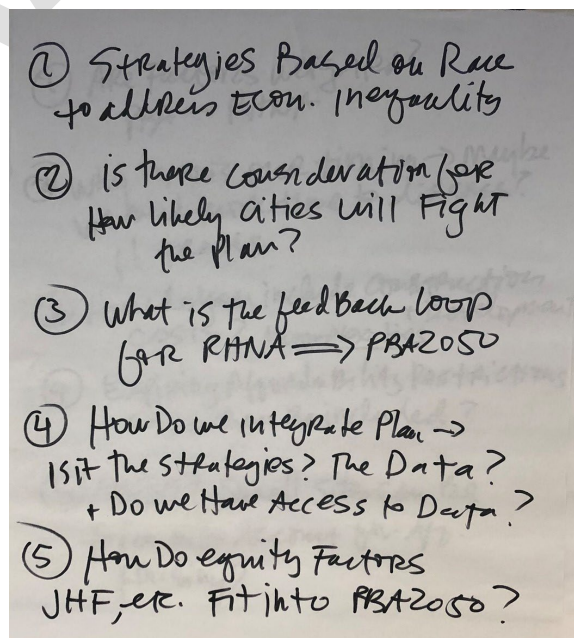 ① Strategies Based on Race
to address Econ. Inequality
② is there consideration for
How likely cities will Fight
the Plan?
③ What is the feedBack loop
for RHNA => PBA2050
④ How Do we integrate Plan ->
Is it the strategies? The Data?
+ Do we Have Access to Data?
⑤ How Do equity Factors
JHF, etc. Fit into PBA2050?